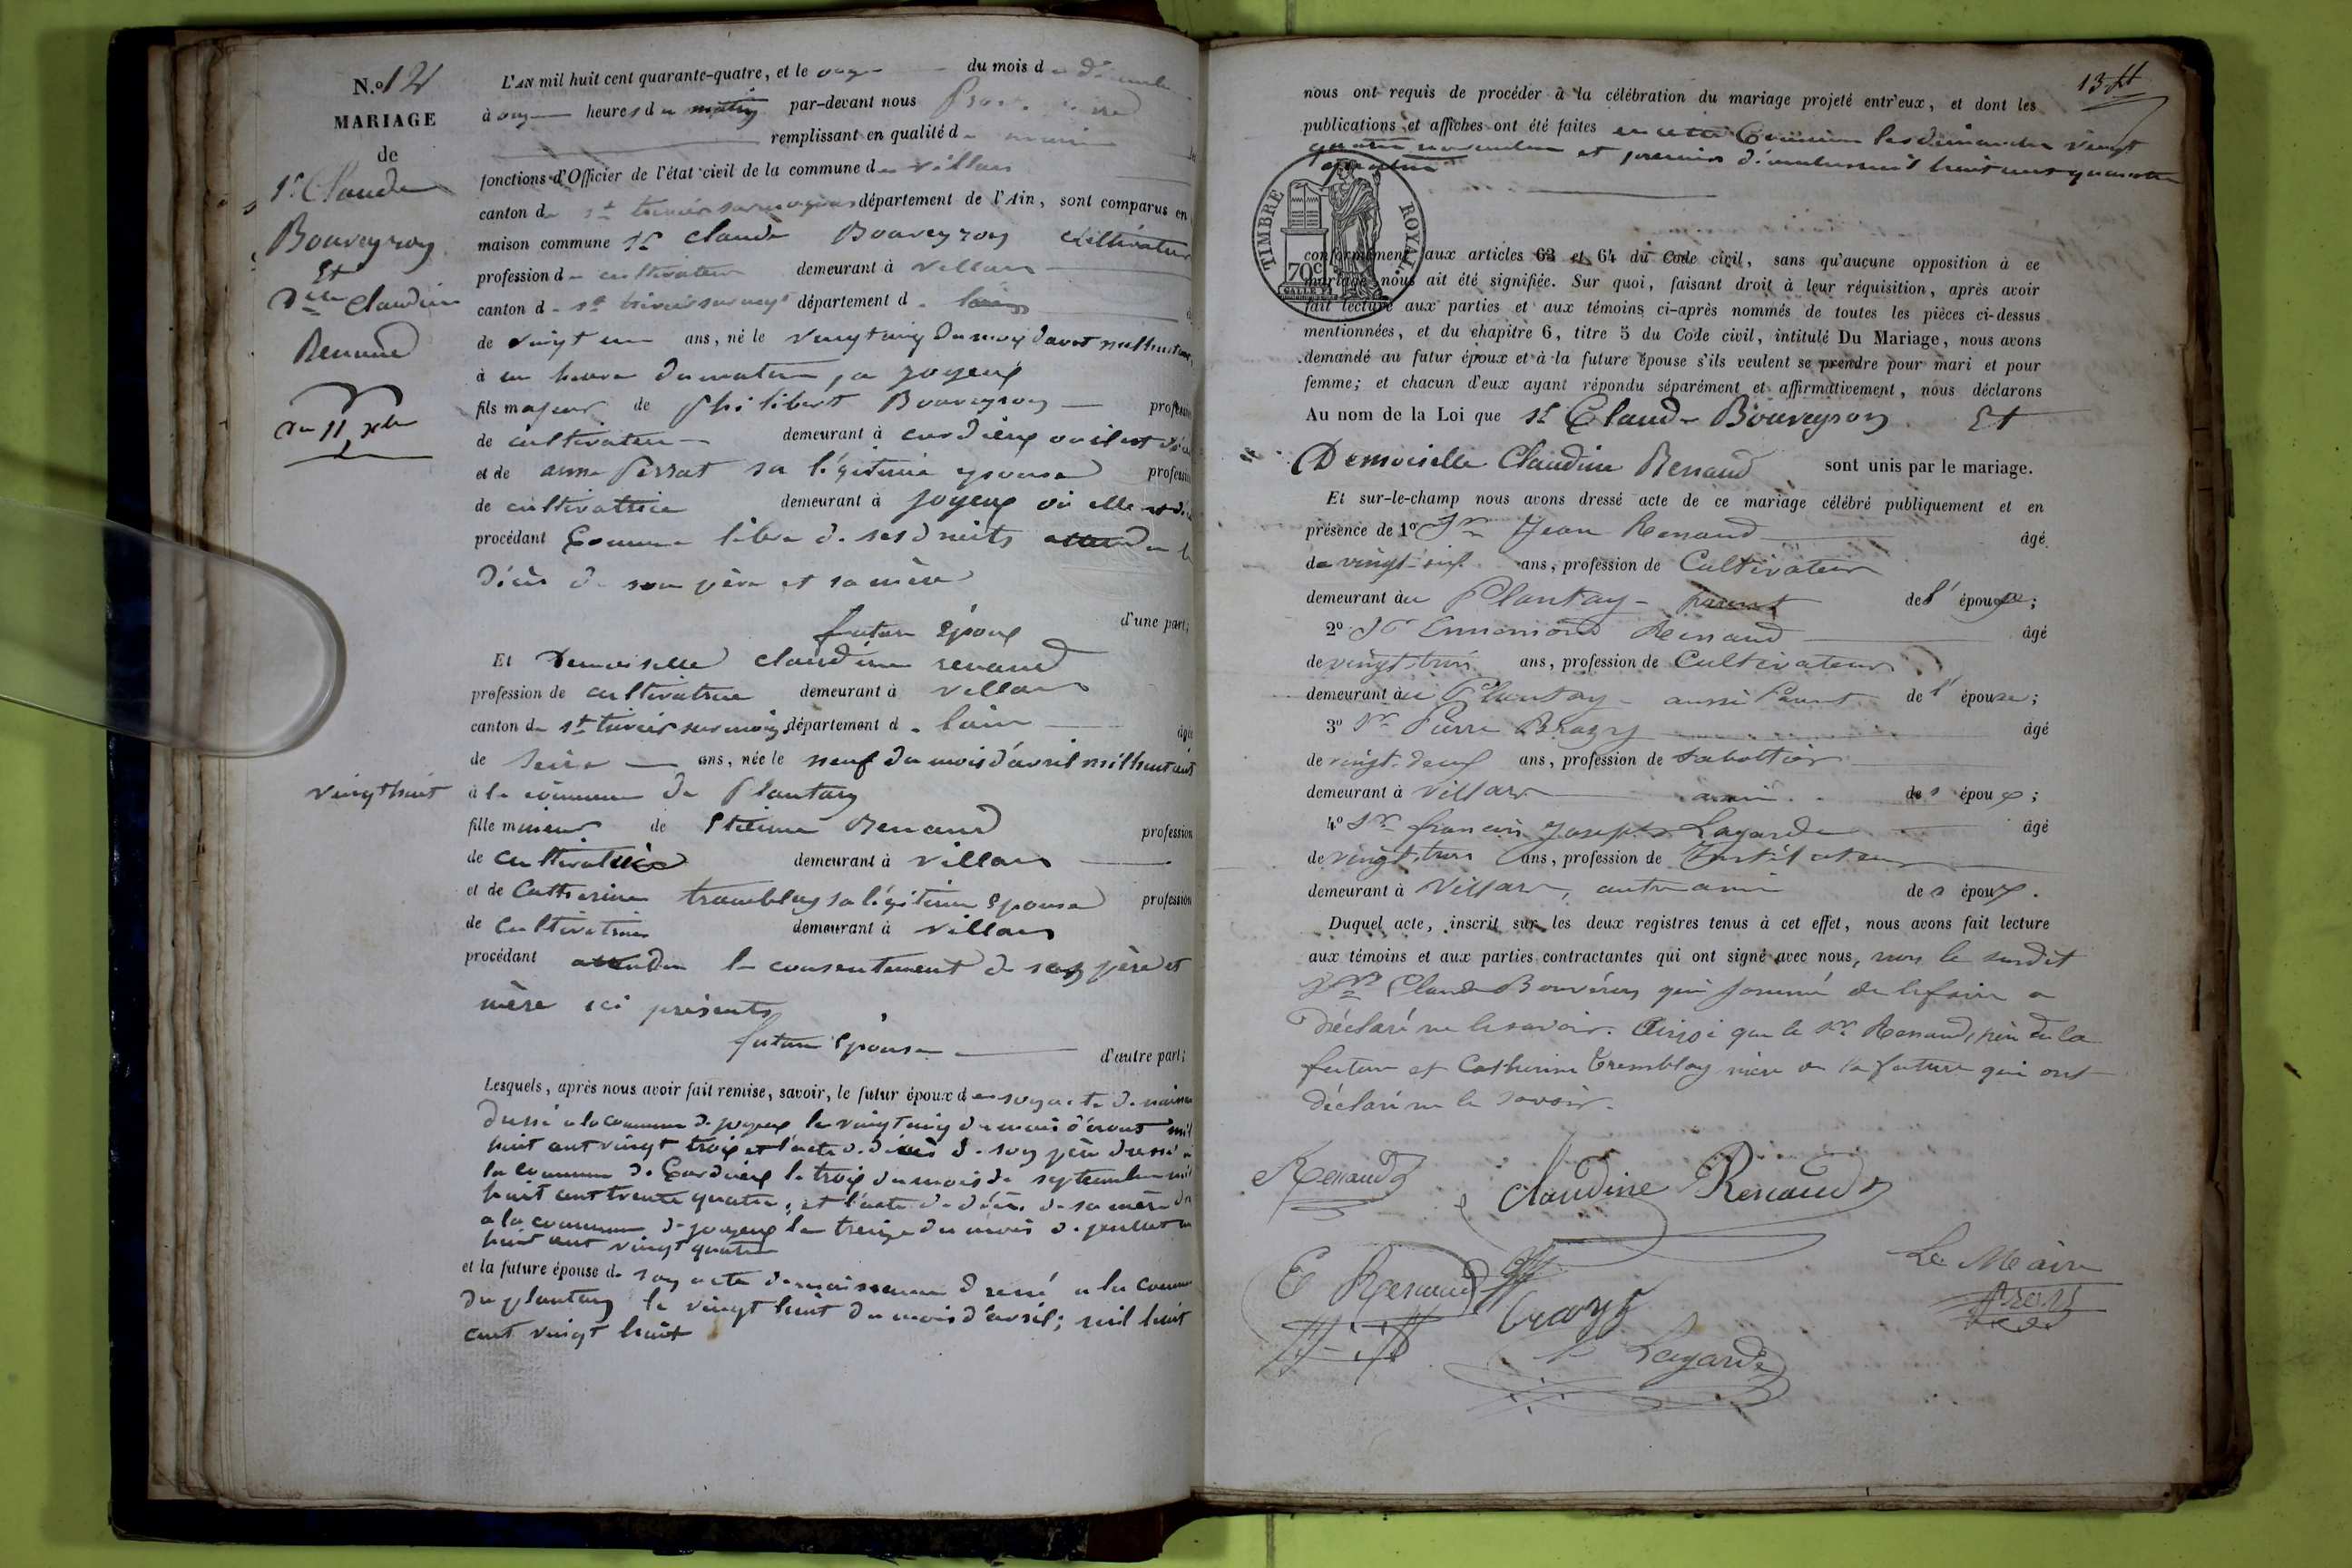 N.o 12
MARIAGE
de
Sr Claude
Bouveyron
Et
Dlle Claudine
Renaud
Du 11 Xbre
L'AN mil huit cent quarante-quatre, et le onze du mois de Décembre
à onze heures du matin par-devant nous
remplissant en qualité de maire
fonctions d'Officier de l'état civil de la commune de villars
canton de st trivier sur moignans département de l'Ain, sont comparus en
maison commune Sr Claude Bouveyron cultivateur
profession de cultivateur demeurant à villars
canton de st trivier sur moigs département de lain
de vingt un ans, né le vingt cinq du mois d'avot mil huit cent
à un heure du matin, a joyeux
fils majeur de philibert Bouveyron profession
de cultivateur demeurant à cordieux ou il est décédé
et de anne Perrat sa légitime epouse profession
de cultivatrice demeurant à joyeux où elle est
procédant Comme libre de ses droits attendu le
décès de son père et sa mère
futur époux d'une part;
Et Demoiselle claudine renaud
profession de cultivatrice demeurant à villars
canton de st trivier sur moigs département de lain âgée
de seize ans, née le neuf du mois d'avril mil huit cent
vingt huit à la commune de Plantay
fille mineur de Etienne Renaud profession
de cultivateur demeurant à villars
et de Catherine tramblay sa légitime épouse profession
de cultivatrice demeurant à villars
procédant attendu le consentement de ses père et
mère ici présents
future épouse d'autre part;
Lesquels, après nous avoir fait remise, savoir, le futur époux de son acte de
dressé a la commune de joyeux le vingt cinq du mois d'avout mil
huit cent vingt trois et l'acte de décès de son père dressé a
la commune de Cordieux le trois du mois de septembre mil
huit cent trente quatre, et l'acte de décès de sa mère
a la commune de joyeux le treize du mois de juillet
huit cent vingt quatre
et la future épouse de son acte de naissance dressé a la commune
du plantay le vingt huit du mois d'avril; mil huit
cent vingt huit
nous ont requis de procéder à la célébration du mariage projeté entr'eux, et dont les
publications et affiches ont été faites en cette Commune les dimanches vingt
quatre novembre et premier décembre mil huit cent quarante
quatre
TIMBRE ROYAL
70c
conformément aux articles 63 et 64 du Code civil, sans qu'aucune opposition à ce
mariage nous ait été signifiée. Sur quoi, faisant droit à leur réquisition, après avoir
fait lecture aux parties et aux témoins ci-après nommés de toutes les pièces ci-dessus
mentionnées, et du chapitre 6, titre 5 du Code civil, intitulé Du Mariage, nous avons
demandé au futur époux et à la future épouse s'ils veulent se prendre pour mari et pour
femme; et chacun d'eux ayant répondu séparément et affirmativement, nous déclarons
Au nom de la Loi que Sr Claude Bouveyron Et
Demoiselle Claudine Renaud sont unis par le mariage.
Et sur-le-champ nous avons dressé acte de ce mariage célébré publiquement et en
présence de 1o Sr Jean Renaud âgé
de vingt-six ans, profession de Cultivateur
demeurant au Plantay - parent de l'épouse;
2o Sr Ennemond Renaud âgé
de vingt trois ans, profession de Cultivateur
demeurant au Plantay - aussi Parent de l'épouse;
3o Sr Pierre âgé
de vingt-deux ans, profession de sabottier
demeurant à Villars ami des époux;
4o Sr françois Joseph Lagarde âgé
de vingt trois ans, profession de Instituteur
demeurant à Villars, autre ami des époux.
Duquel acte, inscrit sur les deux registres tenus à cet effet, nous avons fait lecture
aux témoins et aux parties contractantes qui ont signé avec nous, non le susdit
Sr Claude Bouvéron qui sommé de le faire a
déclaré ne le savoir. Ainsi que le Sr. Renaud, père de la
future et Catherine Tremblay mère de la future qui ont
déclaré ne le savoir.
Renaud
Claudine Renaud
E Renaud
Le Maire
Lagarde